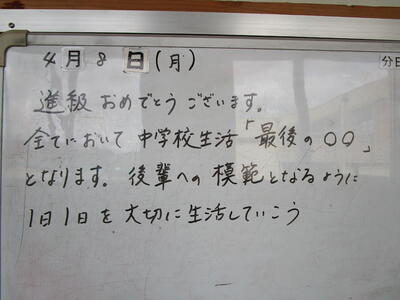 4月8日(月)
分日
進級おめでとうございます。
全てにおいて中学校生活「最後の○○」
となります。後輩への模範となるように
1日1日を大切に生活していこう